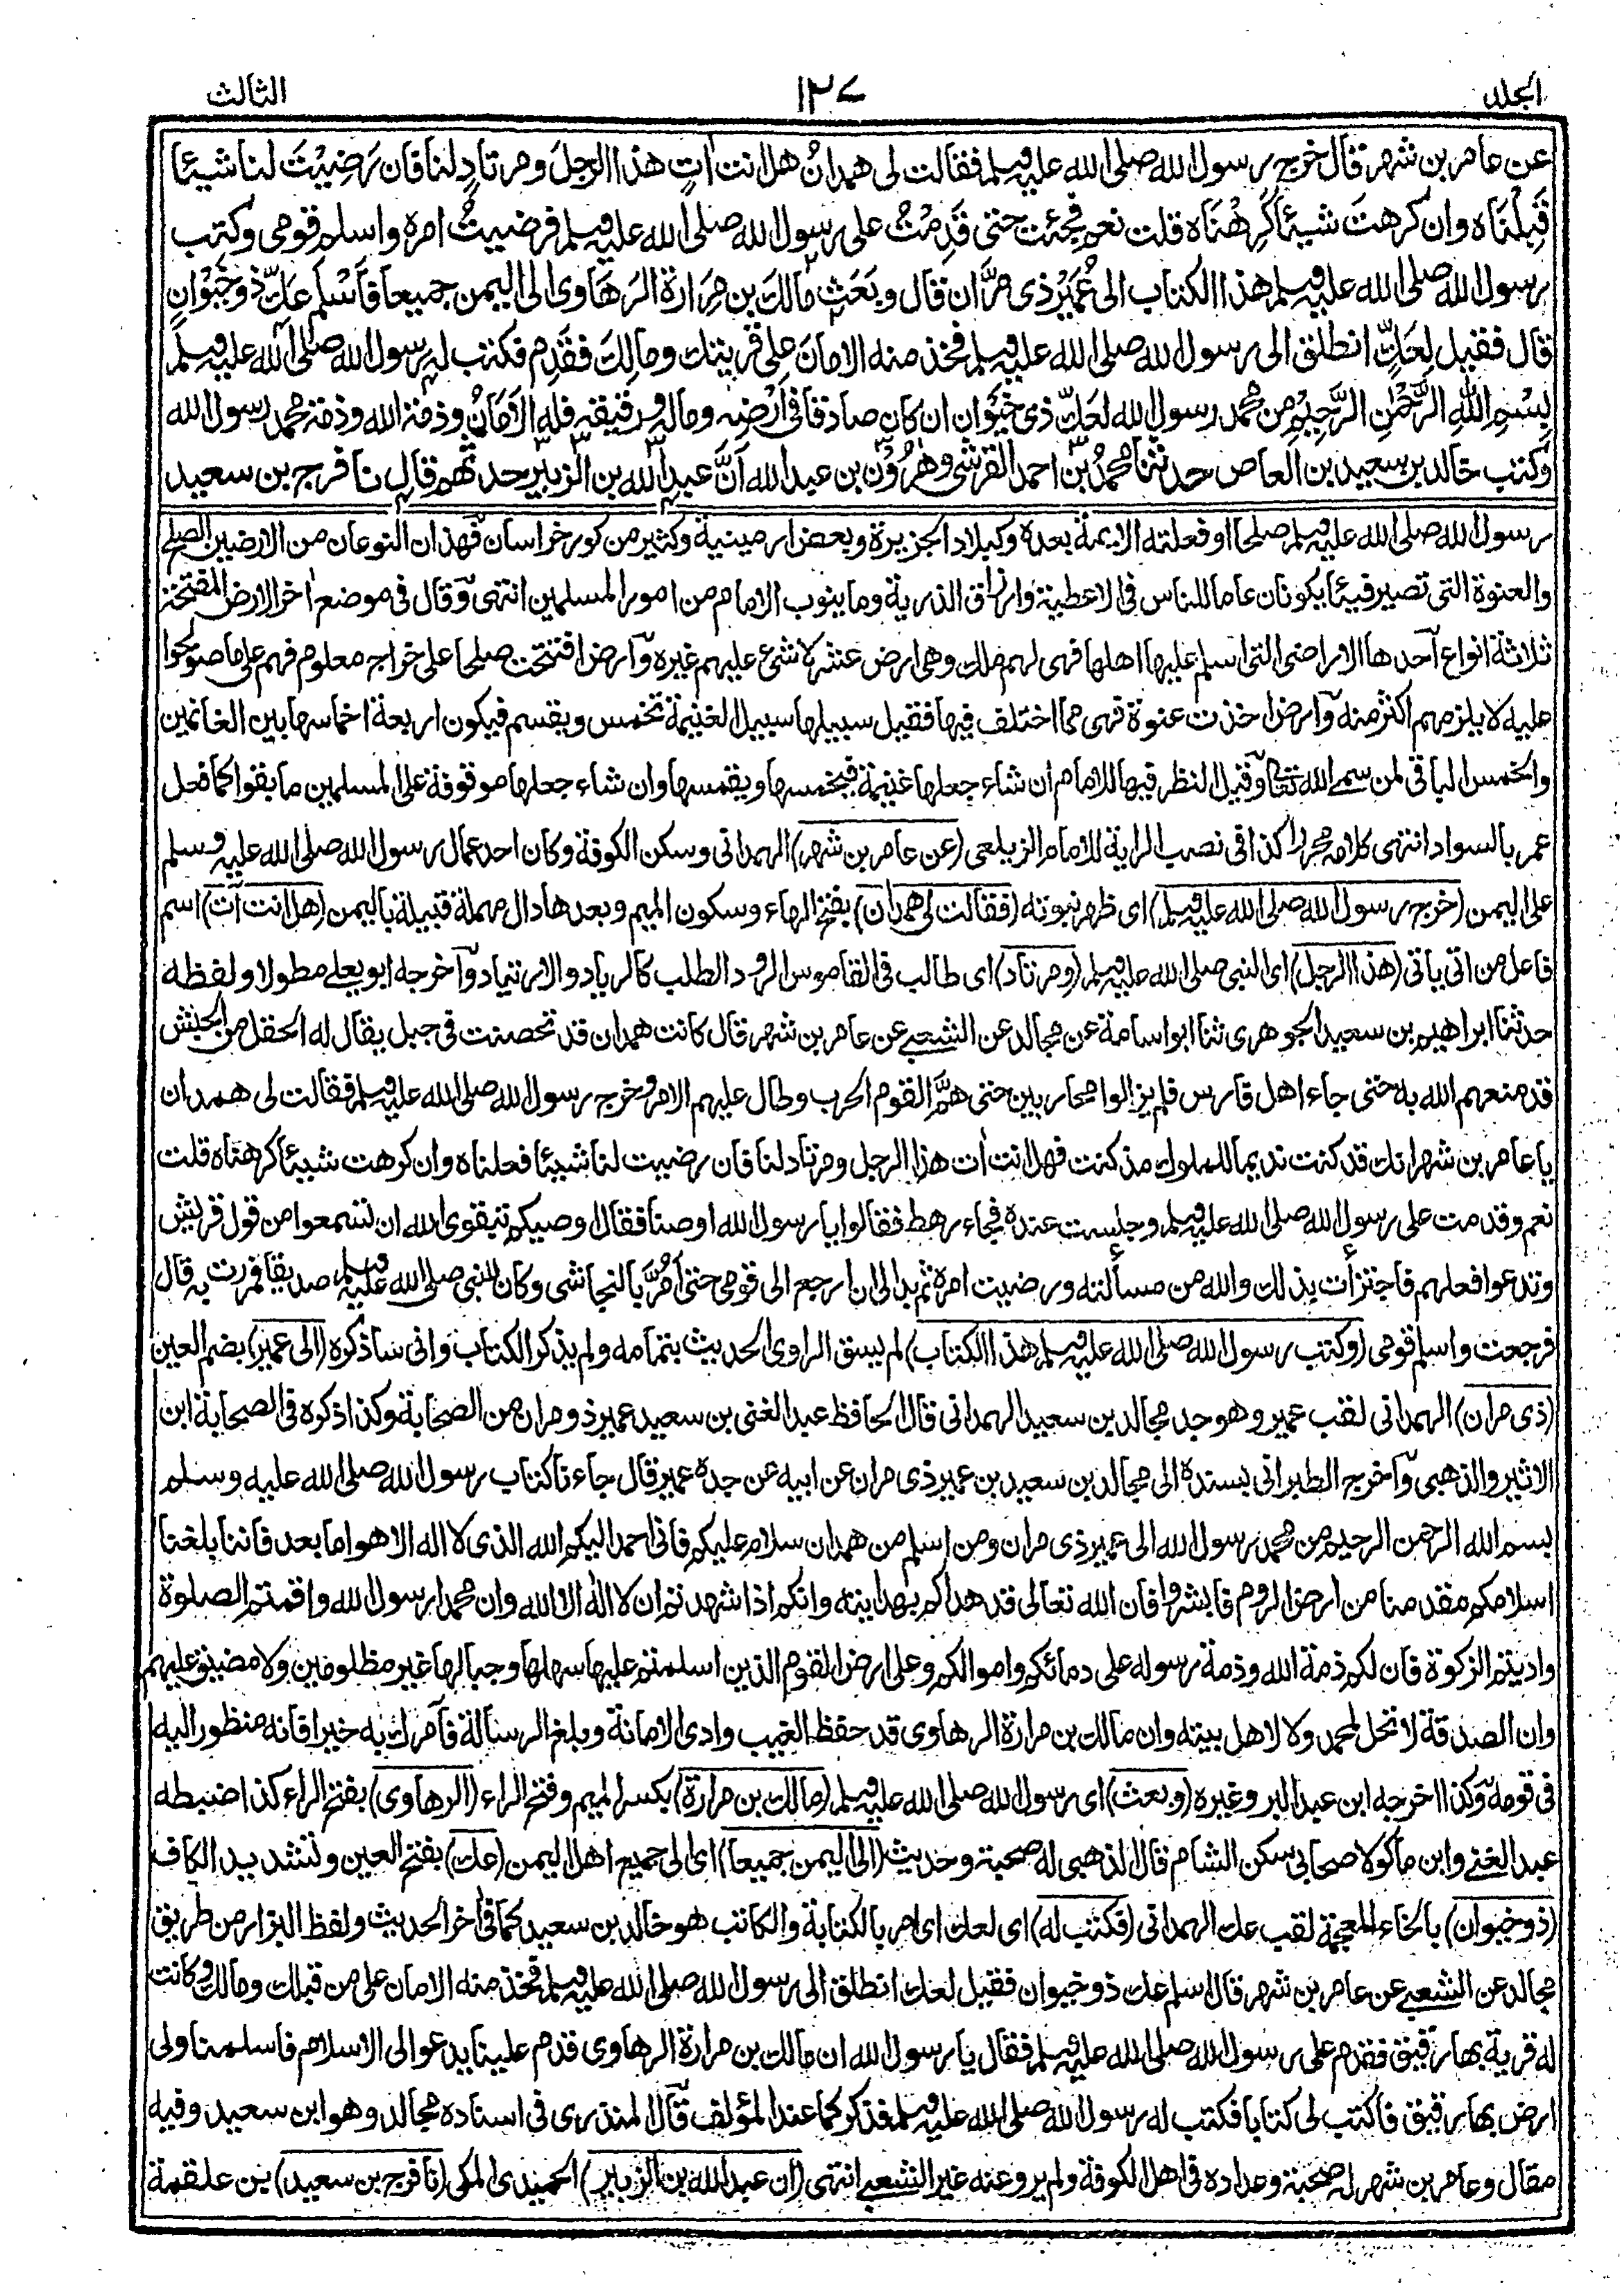 المجلد
١٢٧
الثالث
عن عامر بن شهر قال خرج رسول الله صلى الله عليه وسلم فقالت لي همدان هل انت اٰتٍ هذا الرجلَ ومرتادٍ لنا فان رَضِيْتَ لنا شيئا
قَبِلْنَاه وان كرهتَ شيئا كَرِهْنَاه قلت نعم فجئت حتى قَدِمْتُ على رسول الله صلى الله عليه وسلم فرضيتُ امره واسلم قومي وكتب
رسول الله صلى الله عليه وسلم هذا الكتاب الى عُمَيْرٍ ذي مَرَّان قال وبَعَثَ مالكَ بن مِرَارة الرَهَاوى الى اليمن جميعا فاَسْلَم عَكّ ذو خَيْوَان
قال فقيل لِعَكٍّ انطلق الى رسول الله صلى الله عليه وسلم فخذ منه الامانَ على قريتك ومالِكَ فقَدِم فكتب له رسول الله صلى الله عليه وسلم
بِسْمِ اللهِ الرَّحْمٰنِ الرَّحِيْمِ من محمد رسول الله لعَكّ ذي خَيْوَان ان كان صادقا في اَرْضِه وماله ورقيقه فله الاَمَانُ وذمة الله وذمة محمد رسول الله
وكتب خالد بن سعيد بن العاص حدثنا محمدُ بن احمد القرشي وهٰرُوْنُ بن عبد الله اَنَّ عبد الله بن الزبير حدثهم قال نا فرج بن سعيد
رسول الله صلى الله عليه وسلم صلحا او فعلته الايمة بعده وكبلاد الجزيرة وبعض ارمينية وكثير من كور خراسان فهذان النوعان من الارضين الصلح
والعنوة التي تصير فيئا يكونان عاما للناس في الاعطية وارزاق الذرية وما ينوب الامام من امور المسلمين انتهى وقال في موضع اٰخر الارض المفتتحة
ثلاثة انواع احدها الاراضي التي اسلم عليها اهلها فهي لهم ملك وهي ارض عشر لا شيء عليهم غيره وارض افتتحت صلحا على خراج معلوم فهم على ما صولحوا
عليه لا يلزمهم اكثر منه وارض اخذت عنوة فهي مما اختلف فيها فقيل سبيلها سبيل الغنيمة تخمس ويقسم فيكون اربعة اخماسها بين الغانمين
والخمس الباقي لمن سمى الله تعالى وقيل النظر فيها للامام ان شاء جعلها غنيمة فيخمسها ويقسمها وان شاء جعلها موقوفة على المسلمين ما بقوا كما فعل
عمر بالسواد انتهى كلامه محررا كذا في نصب الراية للامام الزيلعي (عن عامر بن شهر) الهمداني وسكن الكوفة وكان احد عمال رسول الله صلى الله عليه وسلم
على اليمن (خرج رسول الله صلى الله عليه وسلم) اي ظهر نبوته (فقالت لي همدان) بفتح الهاء وسكون الميم وبعدها دال مهملة قبيلة باليمن (هل انت اٰت) اسم
فاعل من اتى ياتي (هذا الرجل) اي النبي صلى الله عليه وسلم (ومرتاد) اي طالب في القاموس الرود الطلب كالرياد والارتياد واخرجه ابو يعلى مطولا ولفظه
حدثنا ابراهيم بن سعيد الجوهري ثنا ابو اسامة عن مجالد عن الشعبي عن عامر بن شهر قال كانت همدان قد تحصنت في جبل يقال له الحقل من الحبش
قد منعهم الله به حتى جاء اهل فارس فلم يزالوا محاربين حتى هَمَّ القوم الحرب وطال عليهم الامر وخرج رسول الله صلى الله عليه وسلم فقالت لي همدان
يا عامر بن شهر انك قد كنت نديما للملوك مذ كنت فهل انت اٰت هذا الرجل ومرتاد لنا فان رضيت لنا شيئا فعلناه وان كرهت شيئا كرهناه قلت
نعم وقدمت على رسول الله صلى الله عليه وسلم وجلست عنده فجاء رهط فقالوا يا رسول الله اوصنا فقال اوصيكم بتقوى الله ان تسمعوا من قول قريش
وتدعوا فعلهم فاجتزأت بذلك والله من مسألته ورضيت امره ثم بدا لي ان ارجع الى قومي حتى اَمُرَّ بالنجاشي وكان للنبي صلى الله عليه وسلم صديقا فمررت به قال
فرجعت واسلم قومي (وكتب رسول الله صلى الله عليه وسلم هذا الكتاب) لم يسق الراوي الحديث بتمامه ولم يذكر الكتاب واني ساذكره (الى عمير) بضم العين
(ذي مران) الهمداني لقب عمير وهو جد مجالد بن سعيد الهمداني قال الحافظ عبد الغني بن سعيد عمير ذو مران من الصحابة وكذا ذكره في الصحابة ابن
الاثير والذهبي واخرج الطبراني بسنده الى مجالد بن سعيد بن عمير ذي مران عن ابيه عن جده عمير قال جاءنا كتاب رسول الله صلى الله عليه وسلم
بسم الله الرحمن الرحيم من محمد رسول الله الى عمير ذي مران ومن اسلم من همدان سلام عليكم فاني احمد اليكم الله الذي لا اله الا هو اما بعد فاننا بلغنا
اسلامكم مقدمنا من ارض الروم فابشروا فان الله تعالى قد هداكم بهدايته وانكم اذا شهدتم ان لا اله الا الله وان محمدا رسول الله واقمتم الصلوة
واديتم الزكوة فان لكم ذمة الله وذمة رسوله على دمائكم واموالكم وعلى ارض القوم الذين اسلمتم عليها سهلها وجبالها غير مظلومين ولا مضيق عليهم
وان الصدقة لا تحل لمحمد ولا لاهل بيته وان مالك بن مرارة الرهاوى قد حفظ الغيب وادى الامانة وبلغ الرسالة فاٰمرك به خيرا فانه منظور اليه
في قومه وكذا اخرجه ابن عبد البر وغيره (وبعث) اي رسول الله صلى الله عليه وسلم (مالك بن مرارة) بكسر الميم وفتح الراء (الرهاوى) بفتح الراء كذا ضبطه
عبد الغني وابن ماكولا صحابي سكن الشام قال الذهبي له صحبة وحديث (الى اليمن جميعا) اي الى جميع اهل اليمن (عك) بفتح العين وتشديد الكاف
(ذو خيوان) بالخاء المعجمة لقب عك الهمداني (فكتب له) اي لعك اي امر بالكتابة والكاتب هو خالد بن سعيد كما في اٰخر الحديث ولفظ البزار من طريق
مجالد عن الشعبي عن عامر بن شهر قال اسلم عك ذو خيوان فقيل لعك انطلق الى رسول الله صلى الله عليه وسلم فخذ منه الامان على من قبلك ومالك وكانت
له قرية بها رقيق فقدم على رسول الله صلى الله عليه وسلم فقال يا رسول الله ان مالك بن مرارة الرهاوى قدم علينا يدعو الى الاسلام فاسلمنا ولي
ارض بها رقيق فاكتب لي كتابا فكتب له رسول الله صلى الله عليه وسلم فذكر كما عند المؤلف قال المنذري في اسناده مجالد وهو ابن سعيد وفيه
مقال وعامر بن شهر له صحبة وعداده في اهل الكوفة ولم يرو عنه غير الشعبي انتهى (ان عبد الله بن الزبير) الحميدي المكي (نا فرج بن سعيد) بن علقمة